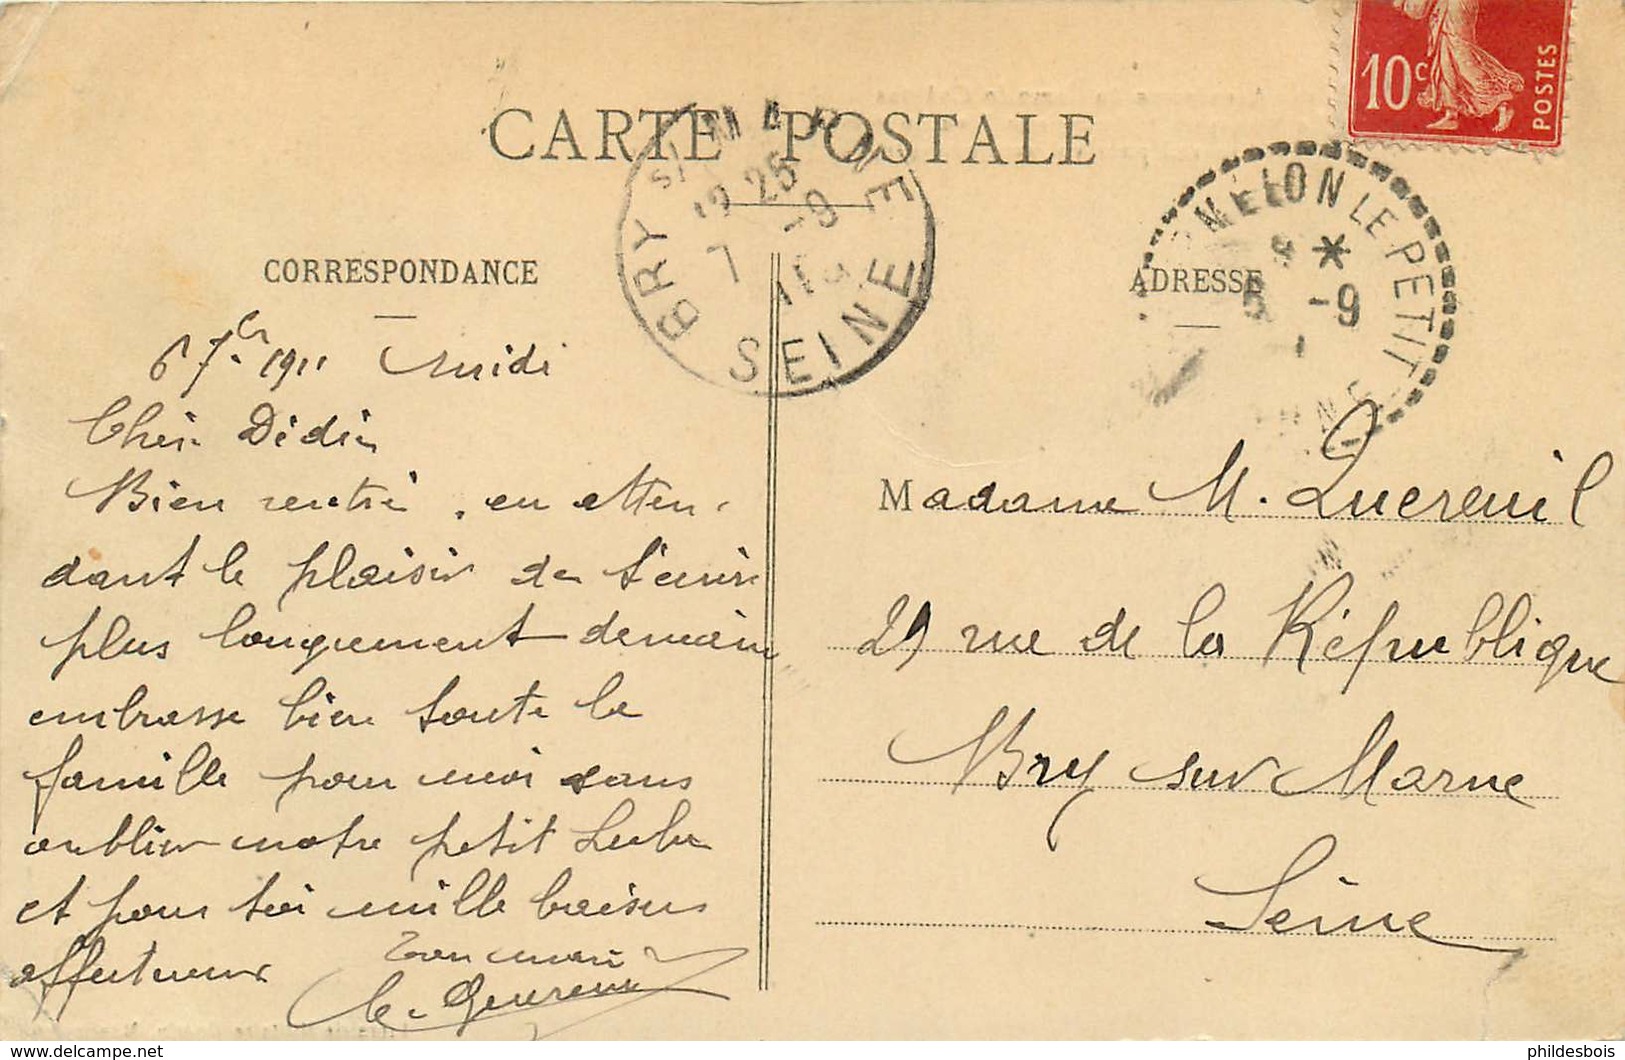 CARTE POSTALE
10c
POSTES
BRY S/ MARNE
12 25
7 -9
11
SEINE
MELON LE PETIT
5 -9
CORRESPONDANCE
6 7bre 1911 midi
Chère Didine
Bien rentré, en atten-
dant le plaisir de t'écrire
plus longuement demain
embrasse bien toute la
famille pour moi sans
oublier notre petit Lulu
et pour toi mille baisers
affectueux
Ton mari
ADRESSE
Madame M. Quereuil
29 rue de la République
Bry sur Marne
Seine
phildesbois